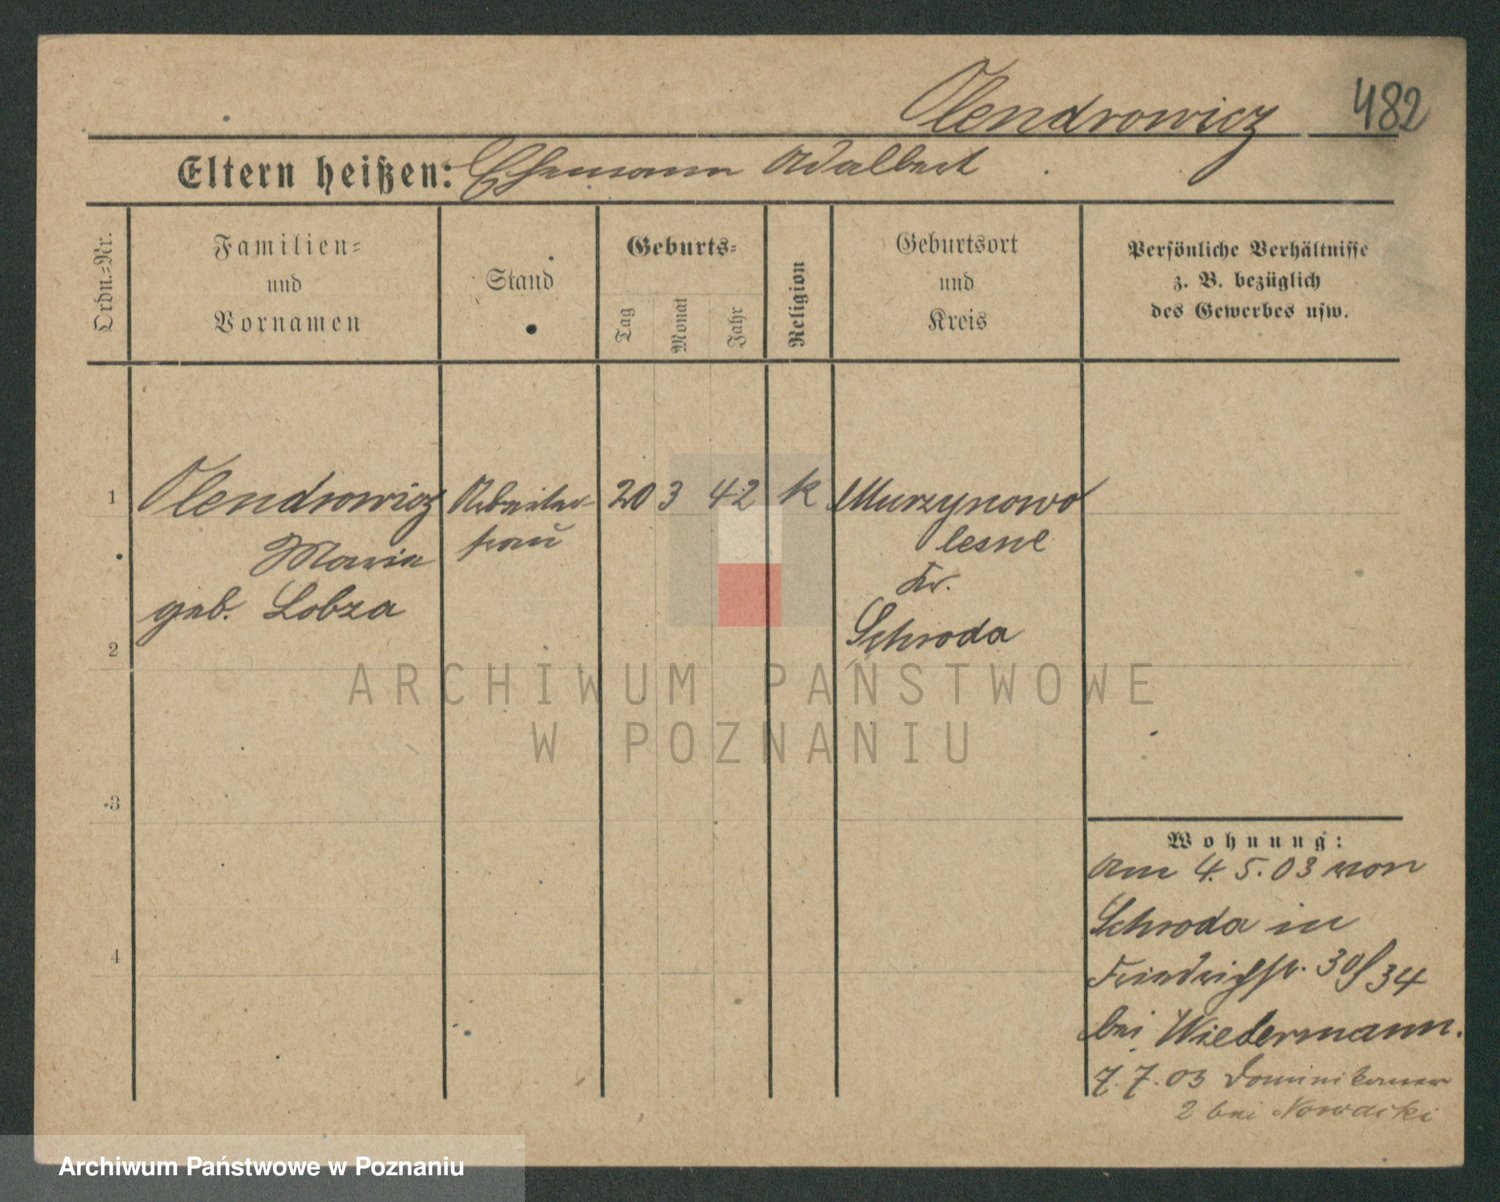 Olendrowicz 482
Eltern heißen: Ehemann Adalbert
Ordn.-Nr.
Familien-
und
Vornamen
Stand
Geburts-
Tag
Monat
Jahr
Religion
Geburtsort
und
Kreis
Persönliche Verhältnisse
z. B. bezüglich
des Gewerbes usw.
1 Olendrowicz Arbeiter- 20 3 42 k Murzynowo
Maria frau lesne
geb. Lobza Kr.
2 Schroda
3
4
Wohnung:
Am 4.5.03 von
Schroda in
Friedrichstr. 30/34
bei Wiedermann.
7.7.03 Dominikaner
2 bei Nowacki
ARCHIWUM PAŃSTWOWE
W POZNANIU
Archiwum Państwowe w Poznaniu